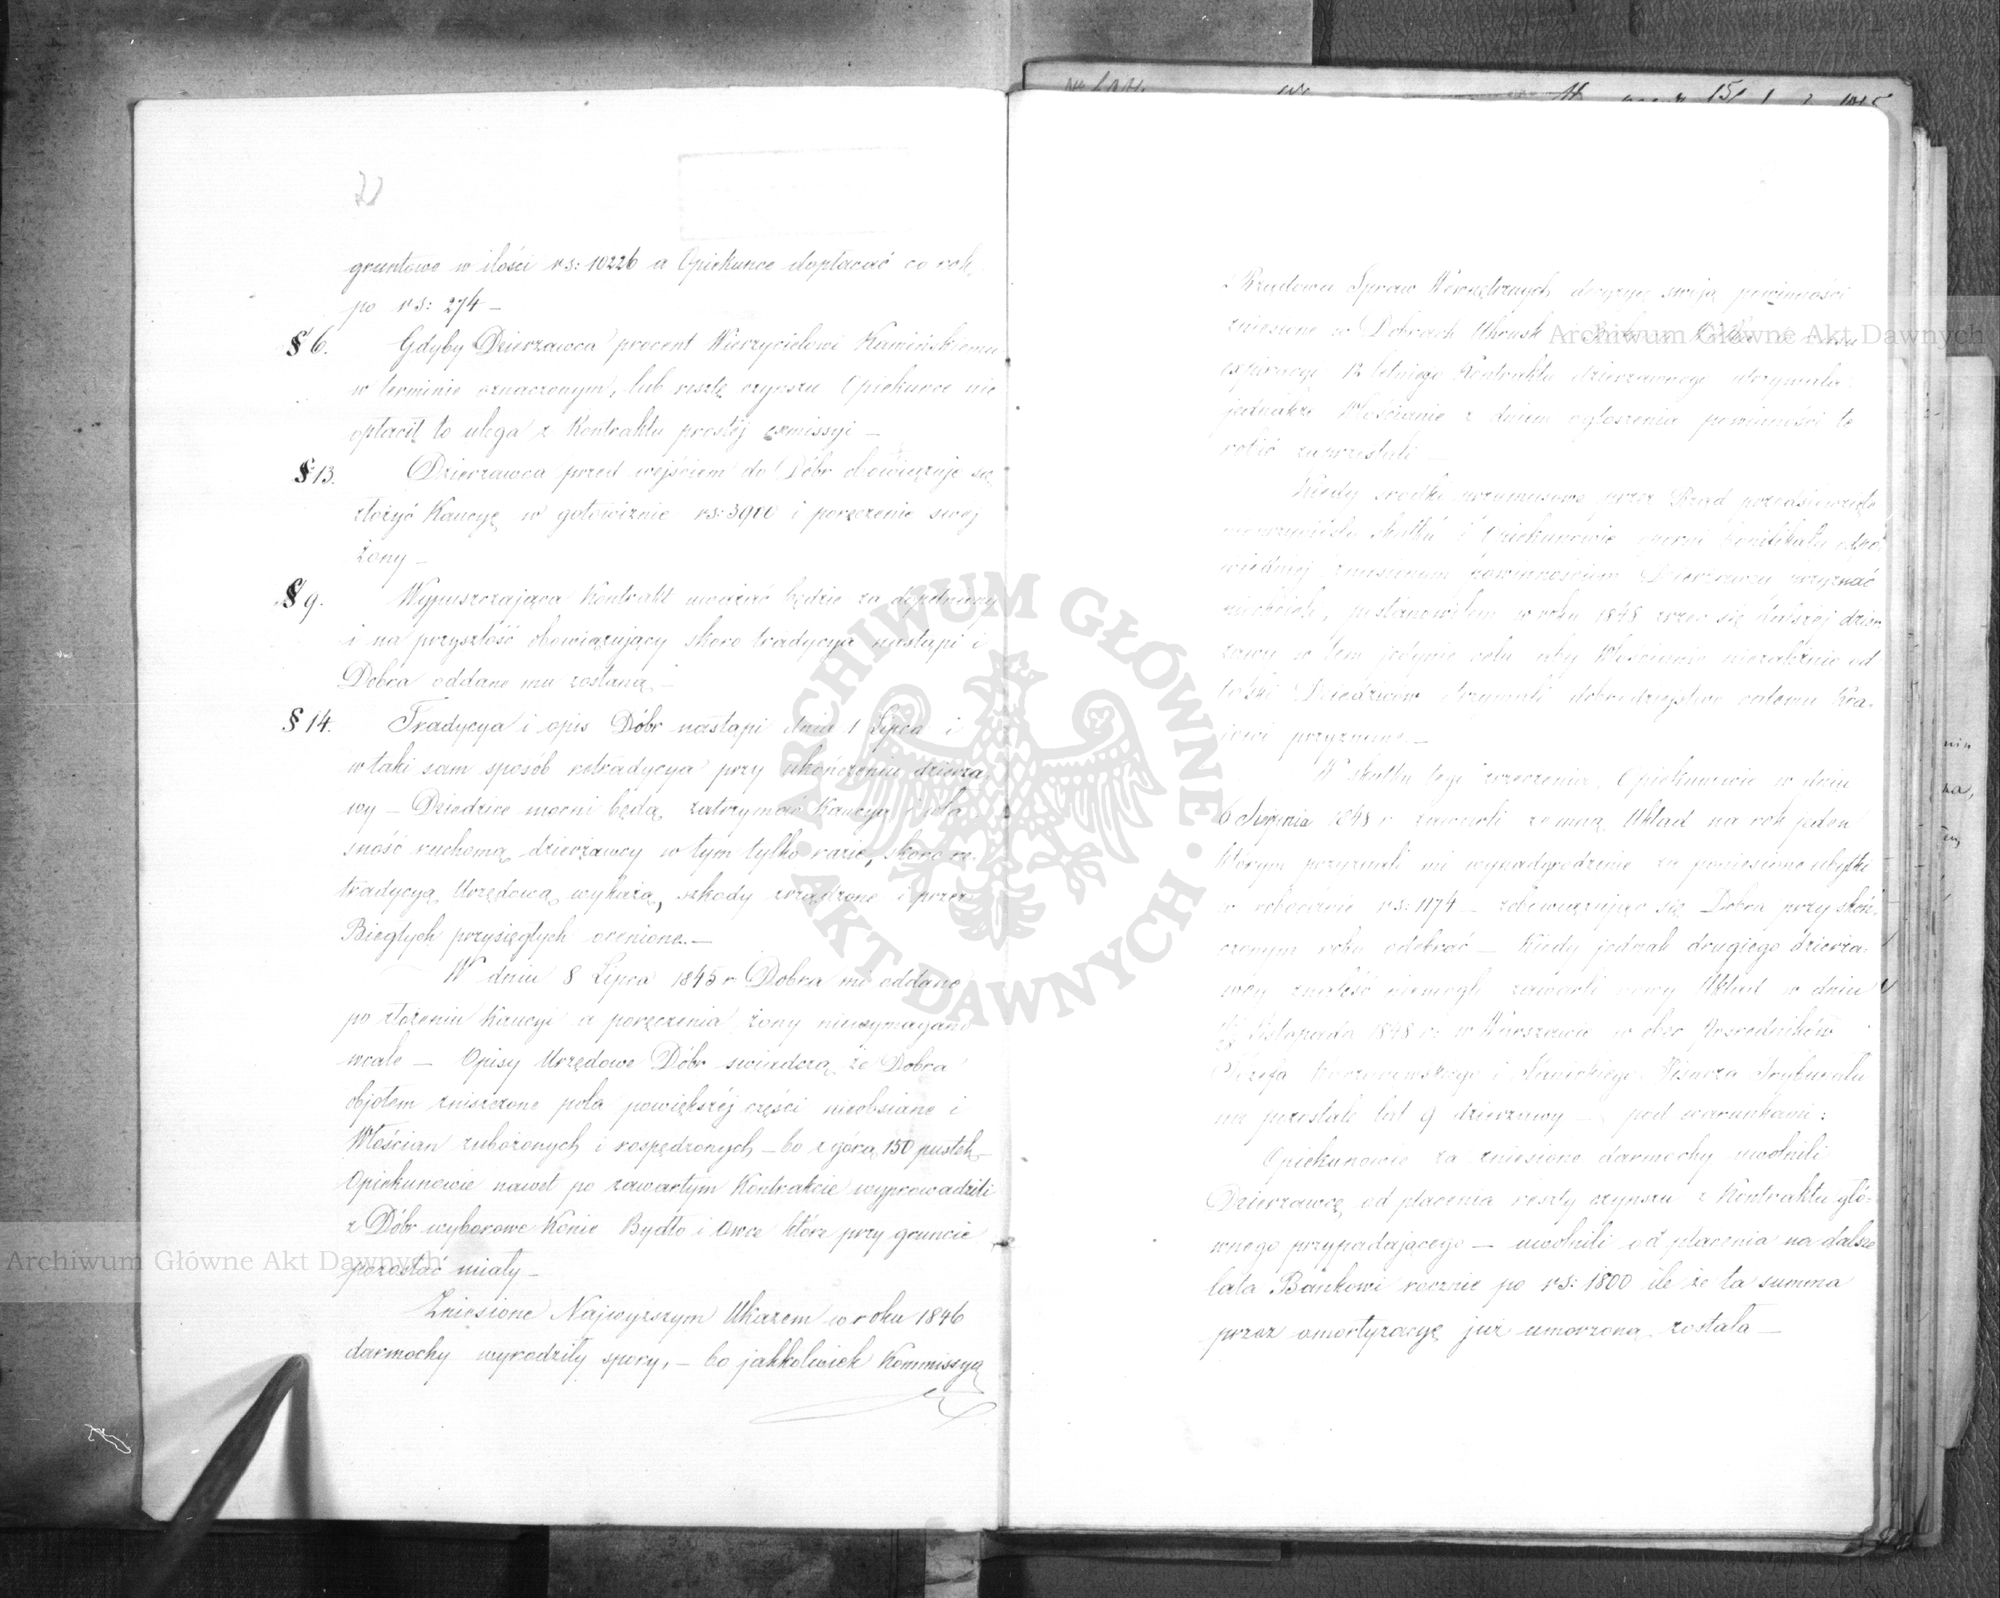 gruntowe w ilości rs: 10226 a Opiekunce dopłacać co rok
po rs: 274 —
§ 6. Gdyby Dzierzawca procent Wierzycielowi Kamińskiemu
w terminie oznaczonym, lub resztę czynszu Opiekunce nie
opłacił to ulega z Kontraktu prostéj exmissyi —
§ 13. Dzierzawca przed wejściem do Dóbr obowiązuje się
złożyć Kaucyę w gotowiznie rs: 3900 i poręczenie swej
żony —
§ 9. Wypuszczająca Kontrakt uważać będzie za dopełniony
i na przyszłość obowiązujący skoro tradycya nastąpi i
Dobra oddane mu zostaną —
§ 14. Tradycya i opis Dóbr nastąpi dnia 1 Lipca i
w taki sam sposób retradycya przy ukończeniu dzierża
wy — Dziedzice mocni będą zatrzymać Kaucyą i wła
sność ruchomą dzierżawcy w tym tylko razie, skoro re
tradycyą Urzędową wykażą, szkody zrządzone i przez
Biegłych przysięgłych ocenione. —
W dniu 8 Lipca 1845 r Dobra mi oddano
po złożeniu Kaucyi a poręczenia żony niewymagano
wcale — Opisy Urzędowe Dóbr świadczą że Dobra
objąłem zniszczone pola powiększéj części nieobsiane i
Włościan zubożonych i rospędzonych — bo z górą 150 pustek —
Opiekunowie nawet po zawartym Kontrakcie wyprowadzili
z Dóbr wyborowe Konie Bydło i Owce które przy gruncie
pozostać miały —
Zniesione Najwyższym Ukazem w roku 1846
darmochy wyrodziły spory, — bo jakkolwiek Kommissya
Rządowa Spraw Wewnętrznych decyzyą swoją powinności
zniesione w Dobrach Uhrusk
expiracyi 12 letniego Kontraktu dzierzawnego utrzymała
jednakże Włościanie z dniem ogłoszenia powinności te
robić zaprzestali —
Kiedy środki przymusowe przez Rząd przedsięwzięte
skutku i Opiekunowie
zniesionym powinnościom Dzierżawcy przyznać
niechcieli, postanowiłem w roku 1848 zrzec się dalszéj dzier
żawy w tem jedynie celu aby Włościanie niezależnie od
Dziedziców otrzymali dobrodziejstwo całemu Kra-
jowi przyznane —
W skutku tego zrzeczenia, Opiekunowie w dniu
6 Sierpnia 1848 r zawarli zemną Układ na rok jeden
którym przyznali mi wynadgrodzenie za poniesione ubytki
w robociznie rs: 1174 — zobowiązując się Dobra przy skoń-
czonym roku odebrać — Kiedy jednak drugiego dzierza-
wcy znaleść niemogli zawarli nowy Układ w dniu
Listopada 1848 r: w Warszawie w obec Pośredników
Józefa Kaczanowskiego i Pisarza Trybunału
na pozostałe lat 9 dzierzawy — pod warunkami:
Opiekunowie za zniesione darmochy uwolnili
Dzierzawcę od płacenia reszty czynszu z Kontraktu głó-
wnego przypadającego — uwolnili od płacenia na dalsze
lata Bankowi rocznie po rs: 1800 ile że ta summa
przez amortyzacyę już umorzoną została —
Archiwum Główne Akt Dawnych
Archiwum Główne Akt Dawnych
ARCHIWUM GŁÓWNE · AKT DAWNYCH ·